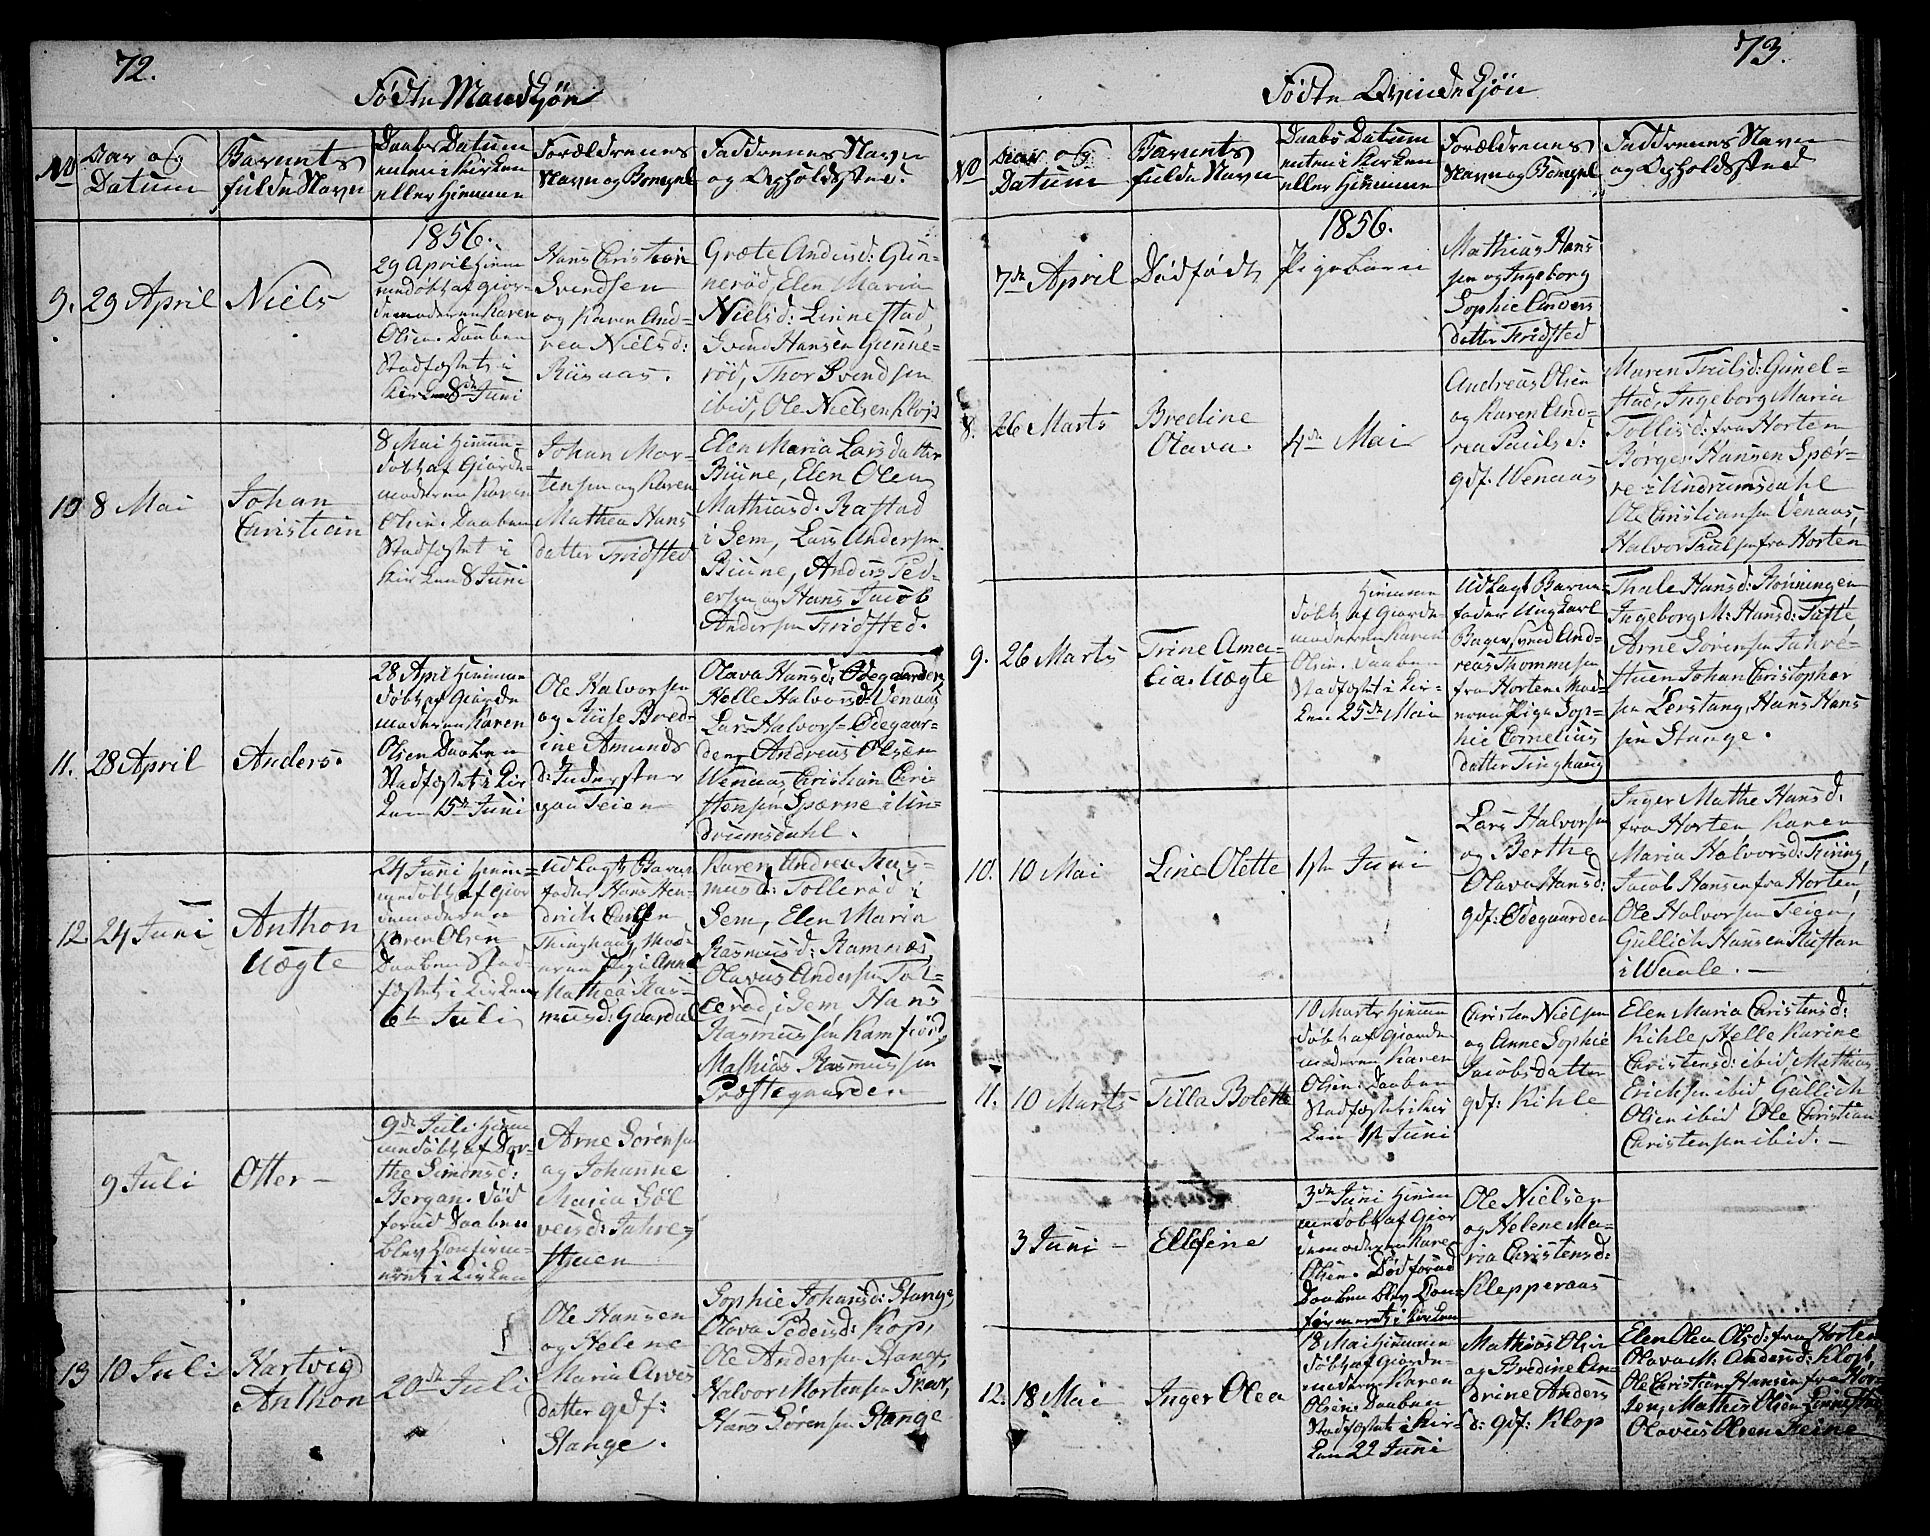 72.
Fødte Mandkjøn
No
Aar og
Datum
Barnets
fulde Navn
Daabs Datum
enten i Kirken
eller Hjemme
Forældrenes
Navn og Bopæl
Faddrenes Navn
og Opholdssted
1856.
9.
29 April
Niels
29 April hjem
medøbt af Gjor
demoderen Karen
Olsen. Daaben
Stadfæstet i
Kirken 8de Juni
Hans Christian
Svendsen
og Karen And-
rea Nielsd:
Riisaas.
Græte Andersd: Gun-
nerød, Elen Maria
Nielsd: Linnestad,
Svend Hansen Gunne-
rød, Thor Svendsen
ibid, Ole Nielsen Klop
10
8 Mai
Johan
Christian
8 Mai hjemme-
døbt af Giorde-
moderen Karen
Olsen. Daaben
Stadfæstet i
Kirken 8 Juni
Johan Mor-
tensen og Karen
Mathea Hans
datter Fridsted
Elen Maria Larsdatter
Biune, Elen Olea
Mathiasd: Rastad
i Sem, Lars Andersen
Biune, Anders Ped-
ersen og Hans Jacob
Andersen Fridsted.
11.
28 April
Anders.
28 April hjemme
døbt af Giorde
moderen Karen
Olsen Daaben
Stadfæstet i Kir
ken 15de Juni
Ole Halvorsen
og Riise Bred-
ine Amunds
d: Inderster
gaa Teien
Olava Hansd: Ødegaarden,
Helle Halvorsd: Venaas
Lars Halvors: Ødegaar-
den, Andreas Olsen
Wenaas Christian Chri-
stensen Spærne i Un-
drumsdahl.
12.
24 Juni
Anthon
Uægte
24 Juni hjem-
medøbt af Gior
demoderen
Karen Olsen
Daaben Stad-
fæstet i Kirken
6te Juli
Udlagt Barne
fader Hans Hen-
drich Carlsen
Thinghaug Mod-
eren Pige Anne
Mathea Ras-
musd: Gaardal
Karen Andrea Ras-
musd: Tollerød i
Sem, Elen Maria
Rasmusd: Ramnæs,
Olavus Andersen Tol-
lerød i Sem Hans
Rasmussen Ramfjord,
Mathias Rasmussen
Præstegaarden
9 Juli
Otter –
9de Juli hjem
medøbt af Dor-
thee Simonsd:
Bergan. Død
forud Daaben
blev Konfirm-
eret i Kirken
Arne Sørensen
og Johanne
Maria Søl
versd: Jahre-
stuen
13
10 Juli
Hartvig
Anthon
20de Juli
Ole Hansen
og Helene
Maria Arves
datter gdf:
Stange.
Sophie Johansd: Stange,
Olava Pedersd: Kop,
Ole Andersen Stange,
Halvor Mortensen Skar,
Hans Sørensen Stange
73.
Fødte Qvindekjøn
No
Aar og
Datum
Barnets
fulde Navn
Daabs Datum
enten i Kirken
eller Hjemme
Forældrenes
Navn og Bopæl
Faddrenes Navn
og Opholdssted
1856.
7de April
Dødfødt
Pigebarn
Mathias Hans
sen og Ingeborg
Sophie Anders
datter Fridsted
8.
26 Marts
Bredine
Olava.
4de Mai
Andreas Olsen
og Karen And-
rea Paulsd:
gdf: Wenaas
Maren Troilsd: Gunel-
stad, Ingeborg Maria
Tollisd: fra Horten
Borger Hansen Spær-
re i Undrumsdahl
Ole Christiansen Venaas,
Halvor Paulsen fra Horten
9.
26 Marts
Trine Ama-
lia. Uægte
Hjemme
døbt af Giorde
moderen Karen
Olsen. Daaben
Stadfæstet i Kir-
ken 25de Mai
Udlagt Barne-
fader Ungkarl
Bagersvend And-
reas Thommesen
fra Horten. Mod-
eren Pige Sop-
hie Cornelius
datter Tinghaug
Thale Hansd: Rønningen
Ingeborg M: Hansd: Tofte
Arne Sørensen Jahre-
stuen Johan Christopher
sen Lerstang, Hans Hans
sen Stange.
10.
10 Mai
Line Olette
1ste Juni
Lars Halvorsen
og Berthe
Olava Hansd:
gdf: Ødegaarden
Inger Mathe Hansd:
fra Horten Karen
Maria Halvorsd:
Jacob Hansen fra Horten,
Ole Halvorsen Teien,
Gullich Hansen Rustan
i Waale. –
11.
10 Marts
Tilla Bolette
10 Marts hjemme
døbt af Giorde
moderen Karen
Olsen. Daaben
Stadfæstet i Kir
ken 1ste Juni
Christen Nielsen
og Anne Sophie
Jacobsdatter
gdf: Kihle
Elen Maria Christensd:
Kihle, Helle Karine
Christensd: ibid, Mathias
Erichsen ibid Gullich
Olsen ibid Ole Christian
Christensen ibid. –
3 Juni –
Ellefine
3de Juni hjem
medøbt af Gior
demoderen Kare
Olsen. Død forud
Daaben blev Kon-
firmeret i Kirken
Ole Nielsen
og Helene Ma-
ria Christensd:
Klepperaas
12.
18 Mai
Inger Olea
18 Mai hjemme
døbt af Giorde-
moderen Karen
Olsen. Daaben
Stadfæstet i Kir-
ken 22 Juni
Mathias Olsen
og Bredine An-
drine Anders
d: gdf: Klop
Elen Olea Olsd: fra Horten
Olava M: Andersd: Klop,
Ole Christian Hansen fra Hor-
ten, Mathis Olsen Linnestad,
Olavus Olsen Reine